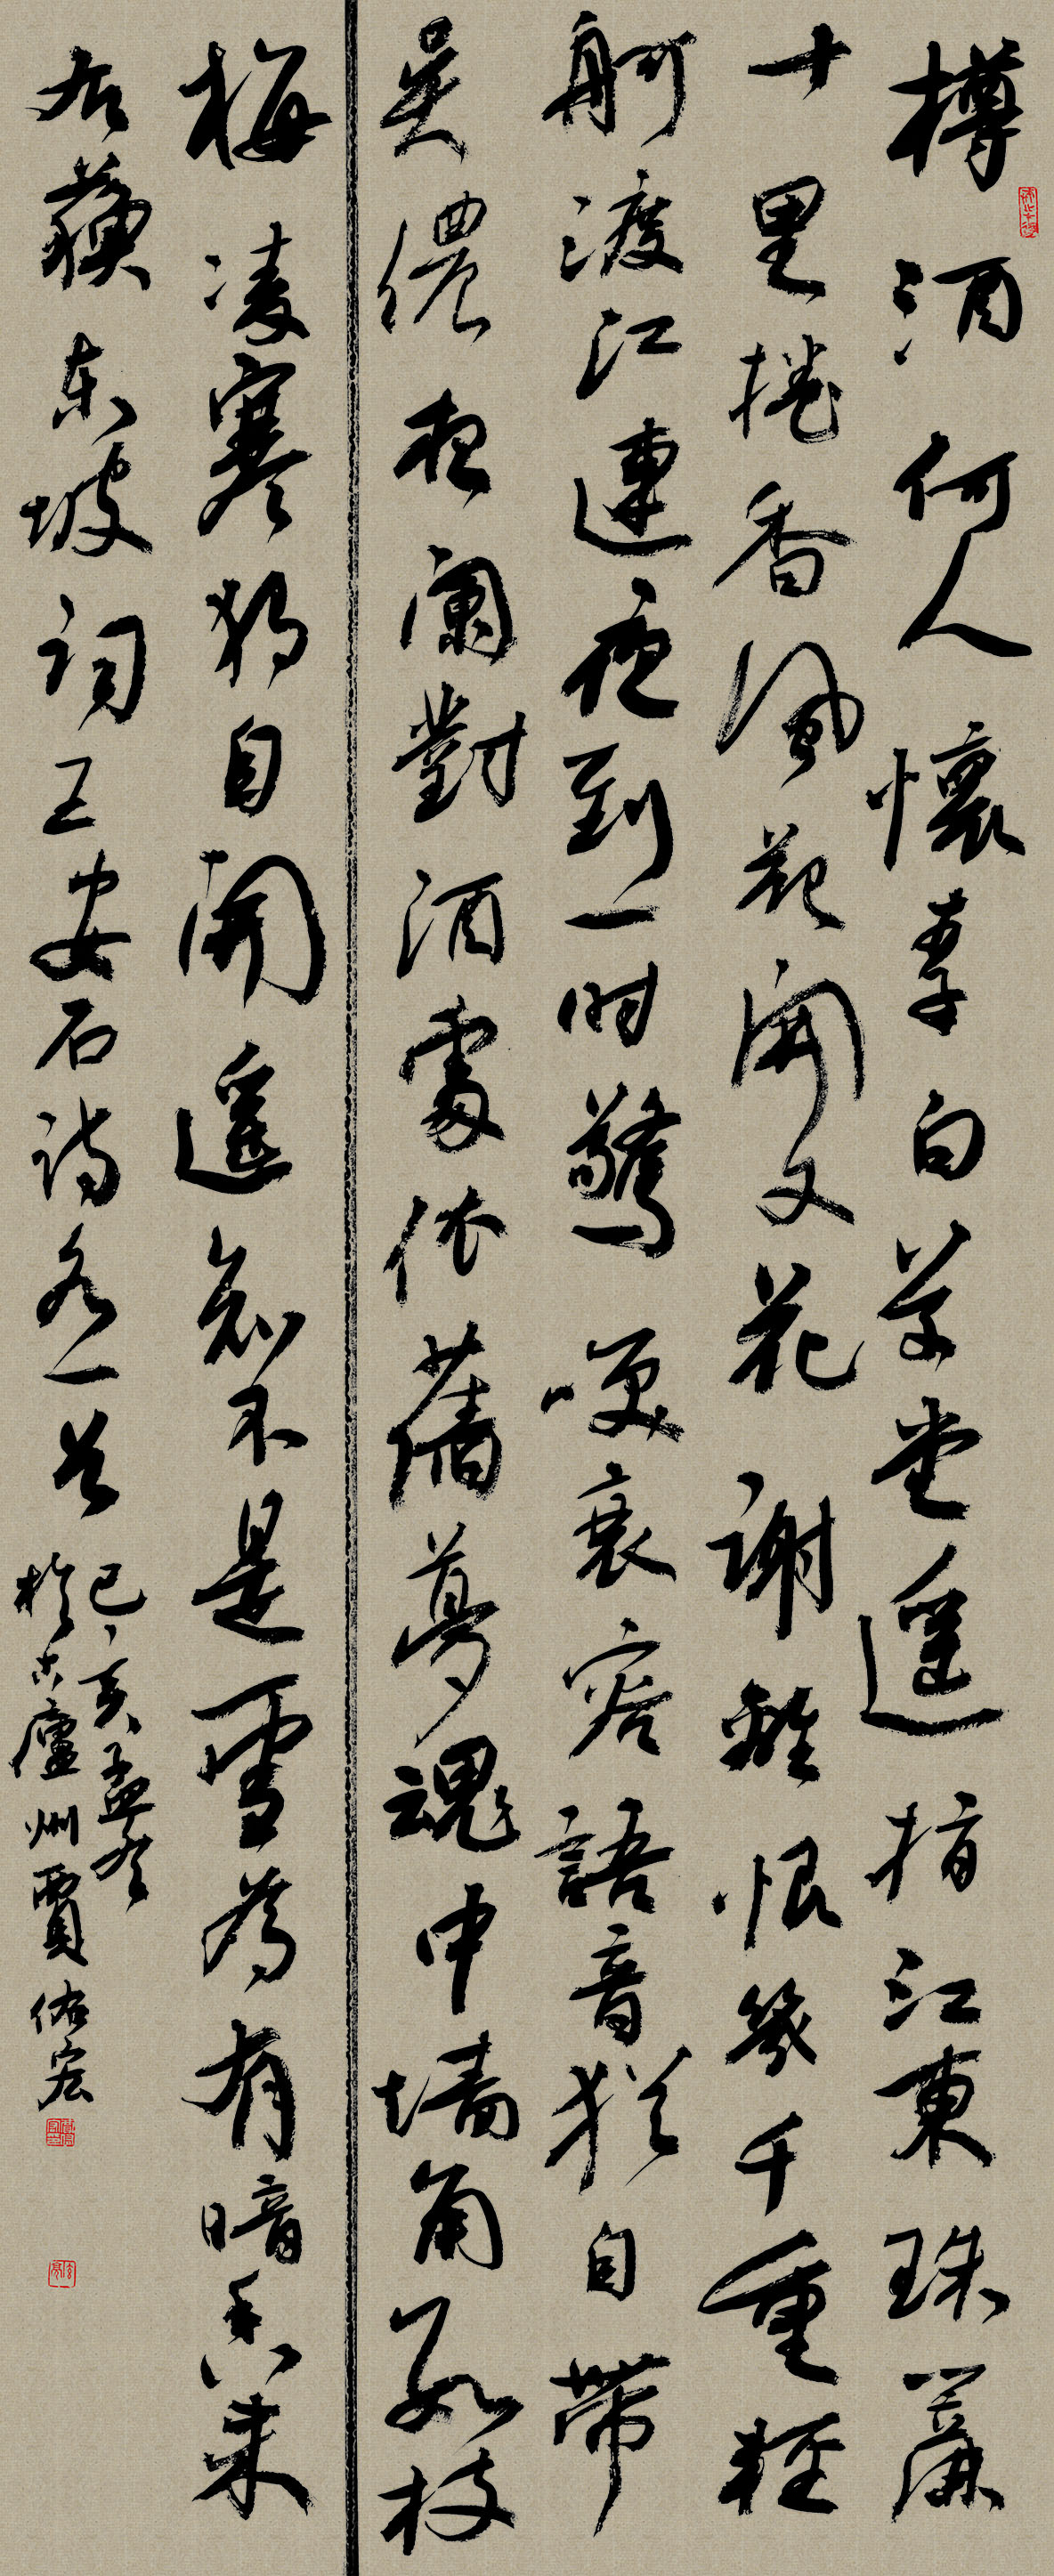 樽酒何人懷李白草堂遥指江東珠簾
十里捲香風花開又花謝離恨幾千重輕
舸渡江連夜到一時驚咲衰容語音猶自帶
吴儂夜闌對酒處依舊夢魂中墙角數枝
梅凌寒獨自開遥知不是雪為有暗香来
右蘇東坡詞王安石詩各一首
己亥孟冬
於古廬州賈佑宏